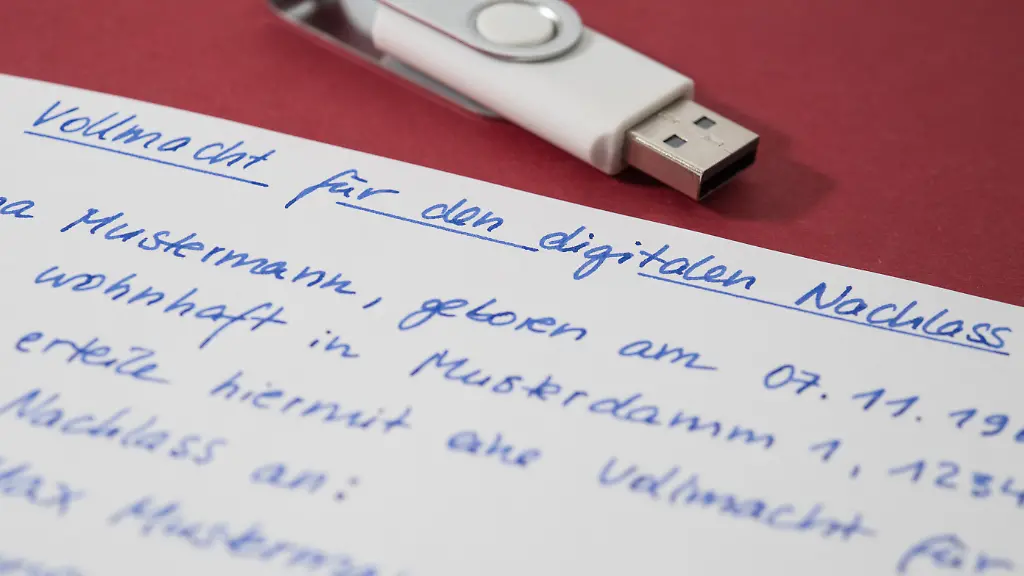 Vollmacht für den digitalen Nachlass
Mustermann, geboren am 07. 11. 19
wohnhaft in Musterdamm 1, 1234
erteile hiermit eine Vollmacht für
Nachlass an:
Max Musterma